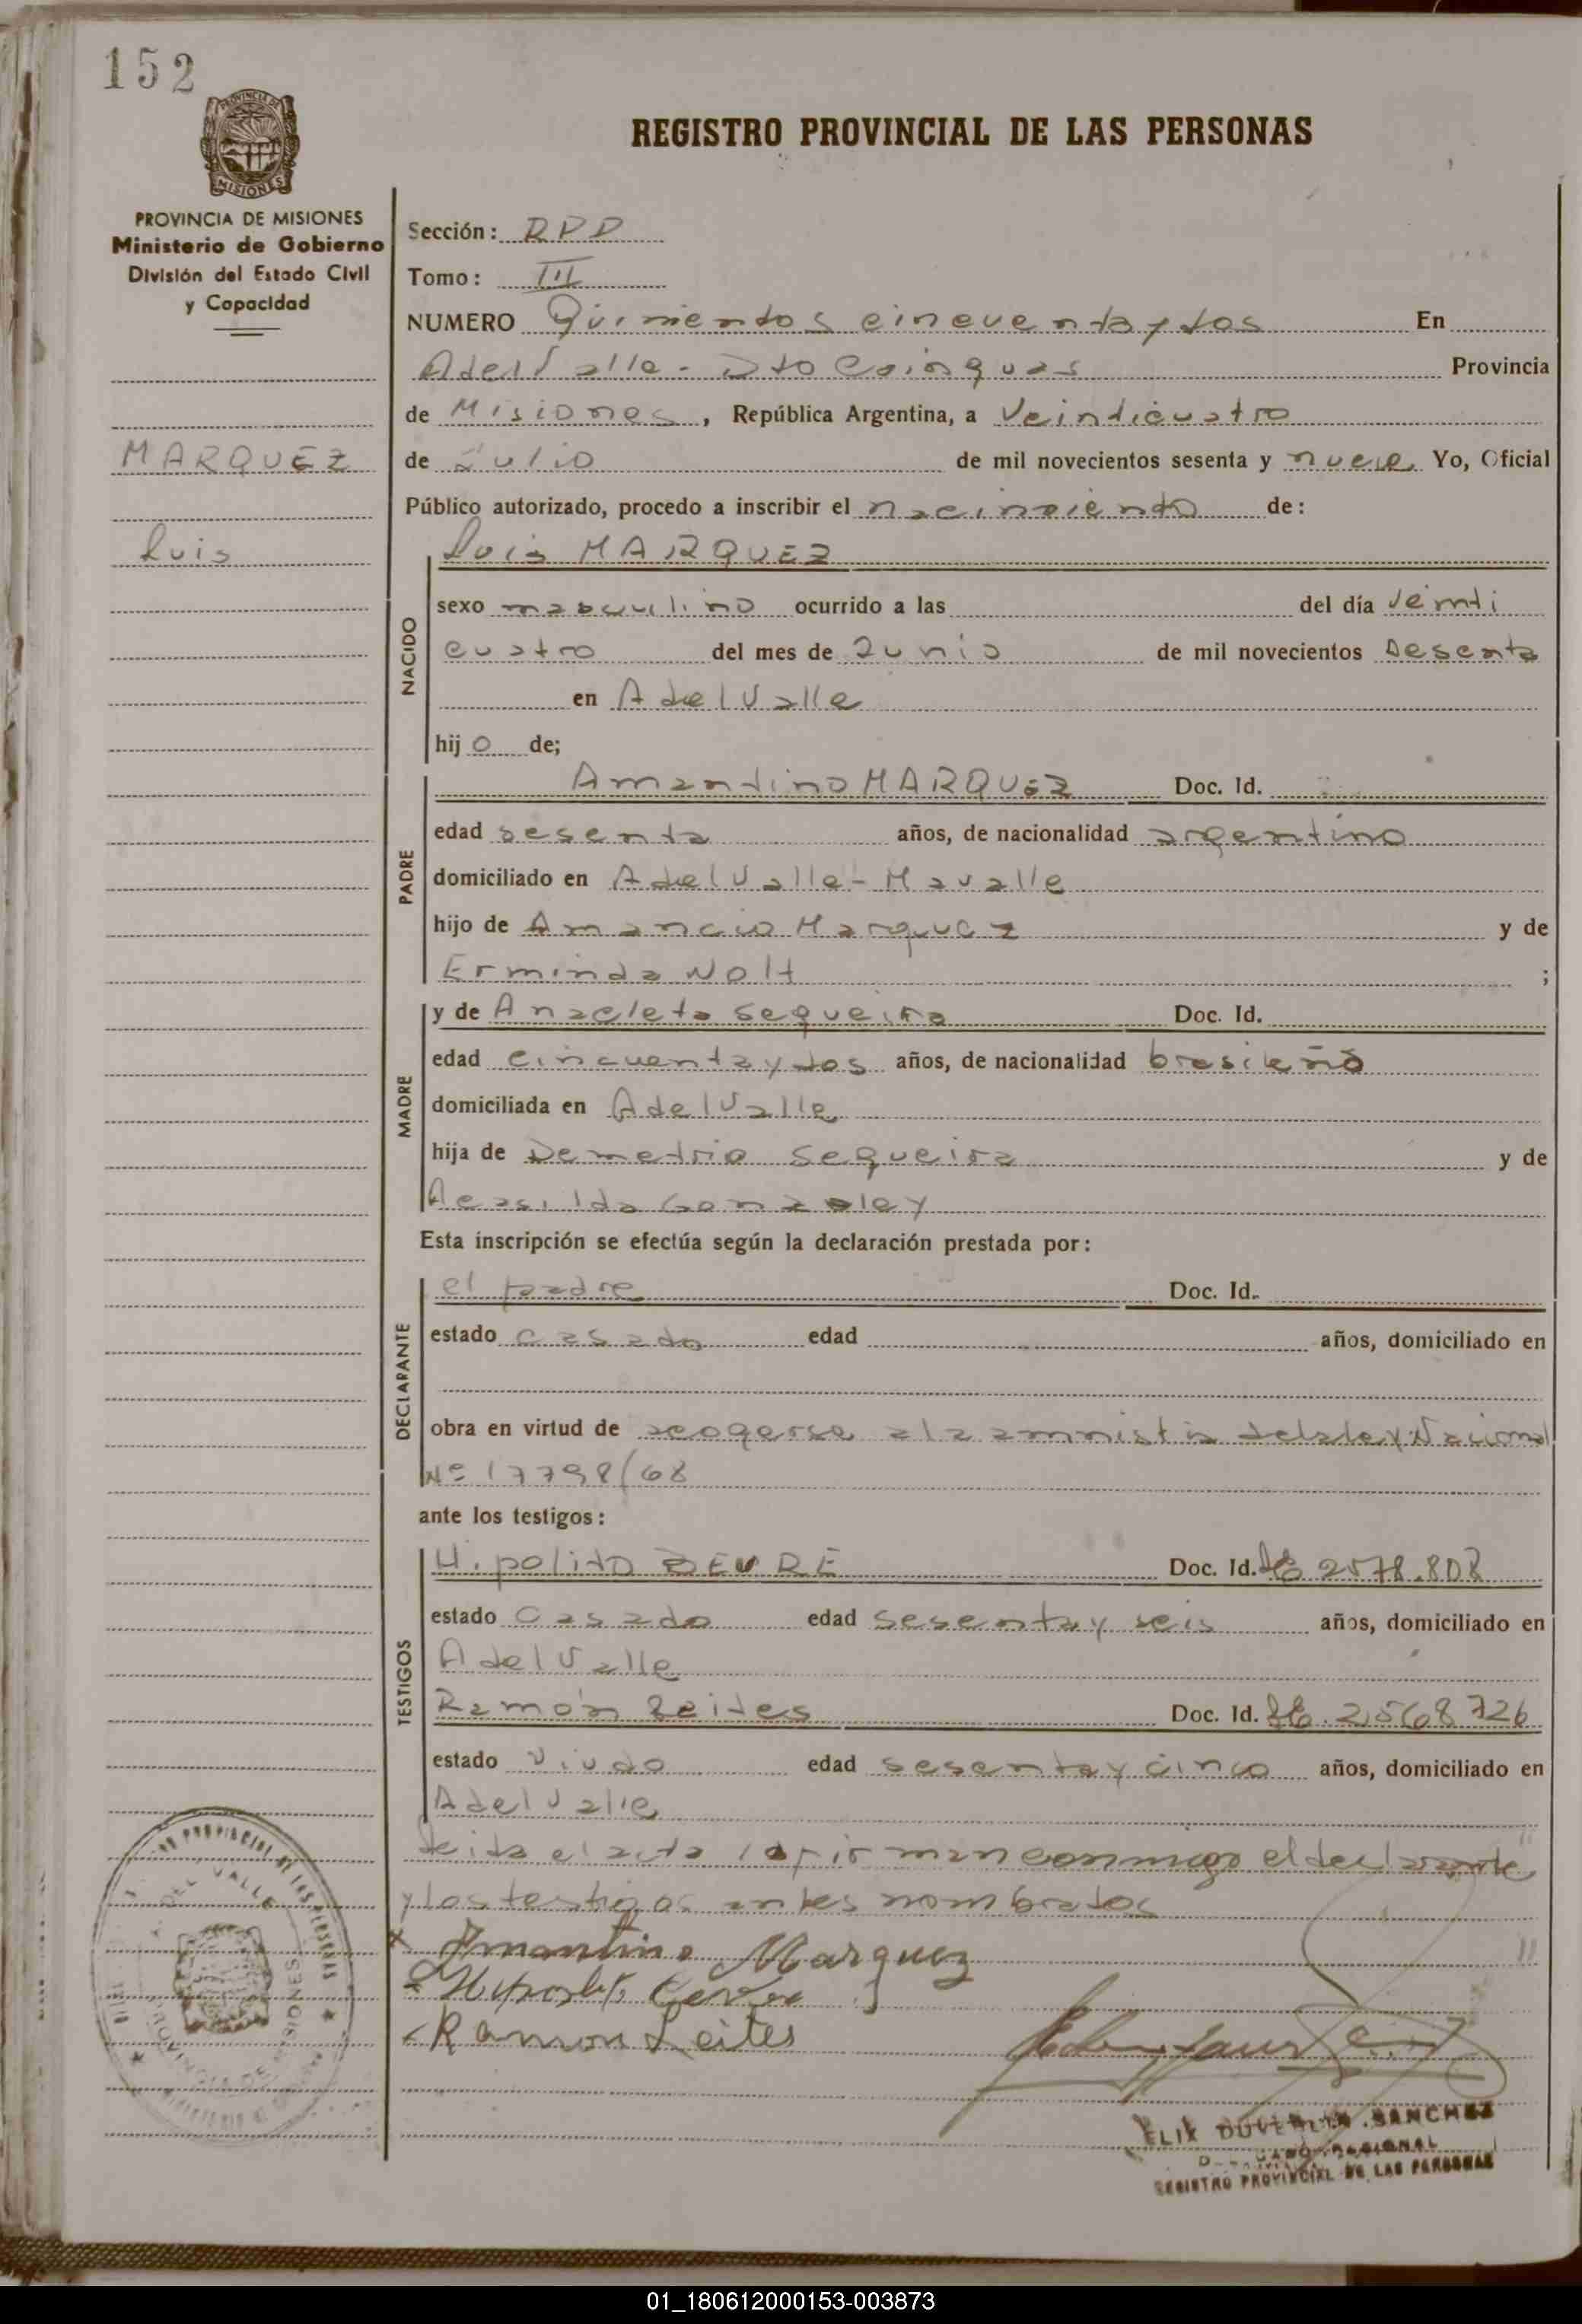 152
PROVINCIA DE
MISIONES
REGISTRO PROVINCIAL DE LAS PERSONAS
PROVINCIA DE MISIONES
Ministerio de Gobierno
División del Estado Civil
y Capacidad
MARQUEZ
Luis
Sección: RPP
Tomo: III
NUMERO Quinientos cincuenta y dos En
A del Valle - Dto Cainguas Provincia
de Misiones, República Argentina, a veinticuatro
de Julio de mil novecientos sesenta y nueve Yo, Oficial
Público autorizado, procedo a inscribir el nacimiento de:
NACIDO
Luis MARQUEZ
sexo masculino ocurrido a las del día veinti
cuatro del mes de Junio de mil novecientos sesenta
en A del Valle
hij o de;
PADRE
Amantino MARQUEZ Doc. Id.
edad sesenta años, de nacionalidad argentino
domiciliado en A del Valle - Mavalle
hijo de Amancio Marquez y de
Erminda Nolt ;
MADRE
y de Anacleta Sequeira Doc. Id.
edad cincuenta y dos años, de nacionalidad brasileña
domiciliada en A del Valle
hija de Demetrio Sequeira y de
Gonzaley
Esta inscripción se efectúa según la declaración prestada por:
DECLARANTE
el padre Doc. Id.
estado casado edad años, domiciliado en
obra en virtud de acogerse a la amnistia de la ley Nacional
Nº 17798/68
ante los testigos:
TESTIGOS
Hipolito Doc. Id. LE 2578.808
estado casado edad sesenta y seis años, domiciliado en
A del Valle
Ramón Leites Doc. Id. LE. 2568726
estado viudo edad sesenta y cinco años, domiciliado en
A del Valle
Leida el acta la firman conmigo el declarante
y los testigos antes nombrados
x Amantino Marquez
Ramon Leites
DEL VALLE
PROVINCIA DE MISIONES
SANCHEZ
REGISTRO PROVINCIAL DE LAS PERSONAS
01_180612000153-003873